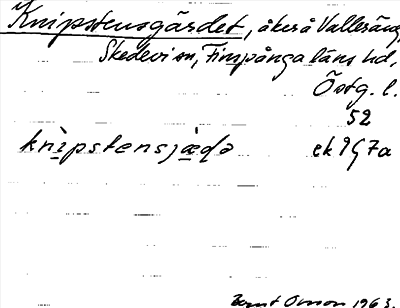 Knipstensgärdet, åker å Vallsäng,
Skedevi sn, Finspånga läns hd,
Östg. l.
52
knìpstensjæ̀ḍə ek 9G7a
1963.